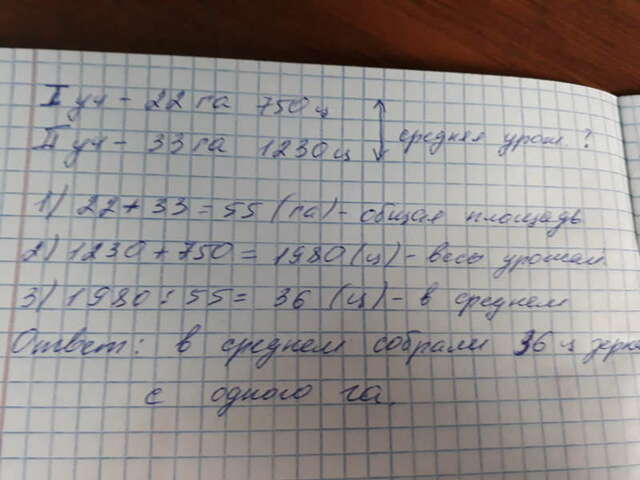 I уч - 22 га 750 ц
II уч - 33 га 1230 ц средняя урож. ?
1) 22 + 33 = 55 (га) - общая площадь
2) 1230 + 750 = 1980 (ц) - весь урожай
3) 1980 : 55 = 36 (ц) - в среднем
Ответ: в среднем собрали 36 ц
с одного га.